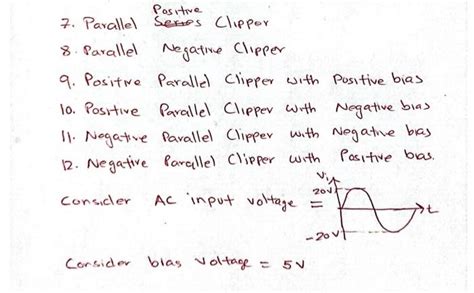 Positive
7. Parallel Series Clipper
8. Parallel Negative Clipper
9. Positive Parallel Clipper with Positive bias
10. Positive Parallel Clipper with Negative bias
11. Negative Parallel Clipper with Negative bias
12. Negative Parallel Clipper with Positive bias.
Vi
20V
Consider AC input voltage = t
-20V
Consider bias voltage = 5V